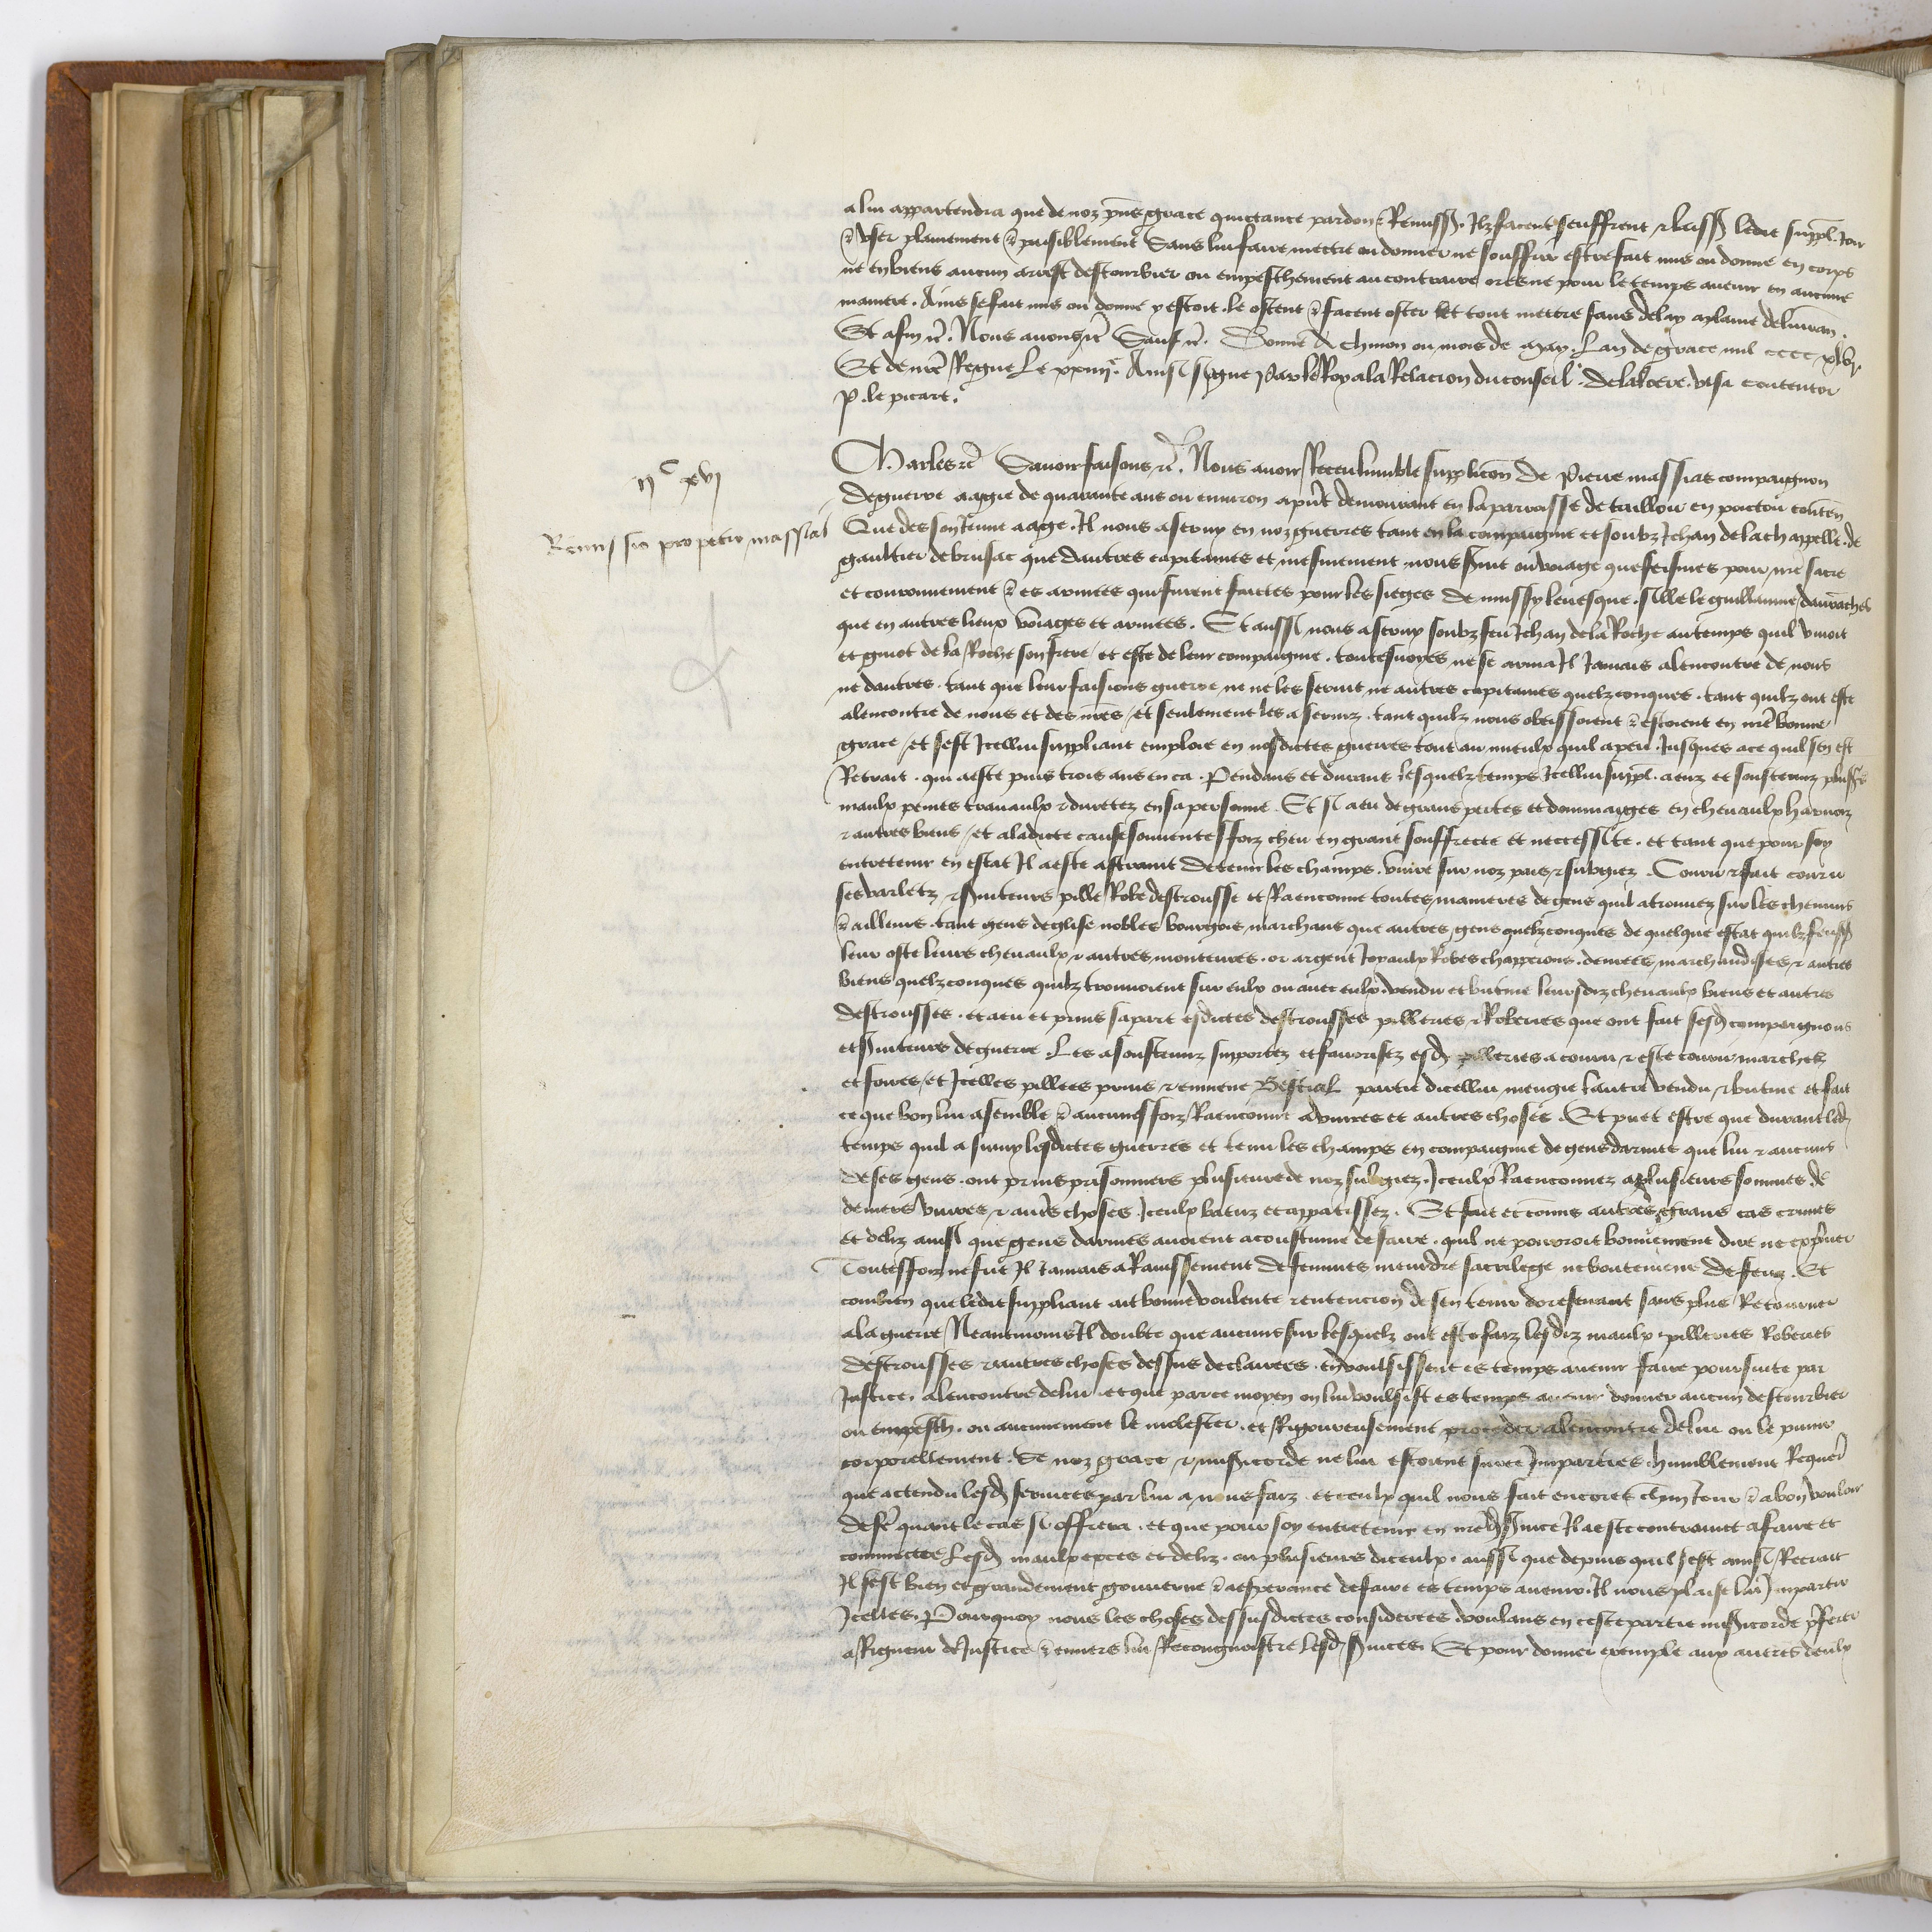 a lui appartendra que de noz pñs grace quictance pardon & Remiss. Ilz facent seuffrent & laiss ledit suppl. Joir
& user plainement & paisiblement Sans lui faire mectre ou donner ne souffrir estre fait mis ou donne en corps
ne en biens aucun arrest destourbier ou empeschement au contraire ores ne pour le temps avenir en aucune
maniere. Ains se fait mis ou donne y estoit. le ostent & facent oster et tout mectre sans delay a plaine delivran.
Et afin &c. Nous avons &c Sauf &c. Donne A Chinon ou mois de May. Lan de grace mil cccc xlvj
Et de nre Regne Le xxiiije. Ainsi signe Par le Roy a la Relacion du conseil. Delaloere. visa contentor
P. le picart.
Charles &c Savoir faisons &c. Nous avoir Receu lumble supplicon De Pierre massias compaignon
De guerre aagie de quarante ans ou environ apñt demourant en la parroisse de taillou en poictou conten
Que des son Jeune aage. Il nous a servy en noz guerres tant en la compaignie et soubz Jehan de la chappelle. de
gaultier de brusac que dautres capitaines et mesmement nous servit ou voiage que feismes pour nre sacre
et couronnement & es armees qui furent faictes pour les sieges De mussy levesque. sille le guillaume davraches
que en autres lieux voiages et armees. Et aussi nous a servy soubz feu Jehan de la Roche au temps quil vivoit
et guiot de la Roche son frere / et este de leur compaignie. toutesvoyes ne se arma Il Jamais alencontre de nous
ne dautres. tant que leur faisions guerre ne ne les servit ne autres capitaines quelzconques. tant quilz ont este
alencontre de nous et des nres / et seulement les a serviz. tant quilz nous obeissoient & estoient en nre bonne
grace / et sest Icellui suppliant emploie en nosdictes guerres tout au mieulx quil a peu. Jusques ace quil sen est
Retrait. qui a este puis trois ans en ca. Pendans et durans lesquelz temps Icellui suppl. a euz et soustenuz plus
maulx peines travaulx & duretez en sa personne. Et si a eu de grans pertes et dommaiges en chevaulx harnoiz
& autres biens / et a ladicte cause souventesfoiz cheu en grant souffrecte et neccessite. et tant que pour soy
entretenir en estat Il a este astraint de tenir les champs. vivre sur noz pais & subgiez. Couru & fait courir
ses varletz & serviteurs pille Robe destrousse et Raenconne toutes manieres de gens quil a trouvez sur les chemins
& ailleurs. tant gens deglise nobles bourgois marchans que autres gens quelzconques de quelque estat quilz feuss
leur oste leurs chevaulx & autres monteures. or argent Joyaulx Robes chapperons. denrees marchandises & autres
biens quelzconques quilz trouvoient sur eulx ou avec eulx. vendu et butine leursdiz chevaulx biens et autres
destrousses. et a eu et prins sa part esdictes destrousses pilleries & Roberies que ont fait sesd compaignons
et serviteurs de guerre. Les a soustenuz supportez et favorisez esd pilleries a couru & este courir marchez
et foires / et Icelles pillees prins & emmene Bestial partie dicellui mengie lautre vendu & butine et fait
ce que bon lui a semble & aucunesfoiz Raenconne a vivres et autres choses. Et puet estre que durant led
temps quil a suivy lesdictes guerres et tenu les champs en compaignie de gens darmes que lui & aucuns
de ses gens. ont prins prisonniers plusieurs de noz subgiez. Iceulx Raenconnez a plusieurs sommes de
deniers vivres & autres choses. Iceulx batuz et appatissez. Et fait et comis autres grans cas crimes
et deliz ainsi que gens darmes avoient acoustume de faire. quil ne pourroit bonnement dire ne exprimer
Toutesfoiz ne fut Il Jamais a Ravissement de femmes meurdre sacrilege ne boutement De feuz. Et
combien que ledit suppliant ait bonne voulente & entencion de sen tenir doresenavant sans plus Retourner
a la guerre Neantmoins Il doubte que aucuns sur lesquelz ont este faiz lesdiz maulx pilleries Roberies
destrousses & autres choses dessus declairees. en voulsissent es temps avenir faire poursuite par
Justice. alencontre de lui. et que par ce moyen on lui voulsist es temps avenir donner aucun destourbier
ou empesch. ou aucunement le molester. et Rigoureusement proceder alencontre de lui ou le punir
corporellement. Se noz grace & misericorde ne lui estoient sur ce Imparties. humblement Requer
que actendu lesd services par lui a nous faiz. et ceulx quil nous fait encores chun Jour & a bon vouloir
de fe quant le cas si offrera. et que pour soy entretenir en nred service Il a este contraint a faire et
commectre Lesd maulx exces et deliz. ou plusieurs diceulx. aussi que depuis quil sest ainsi Retrait
Il sest bien et grandement gouverne & a esperance de faire es temps avenir. Il nous plaise lui Impartir
Icelles. Pourquoy nous les choses dessusdictes considerees. voulans en ceste partie misericorde preferer
a Rigueur de Justice & envers lui Recongnoistre lesd services. Et pour donner exemple aux autres deulx
ijc xvj
Remissio pro petro massias